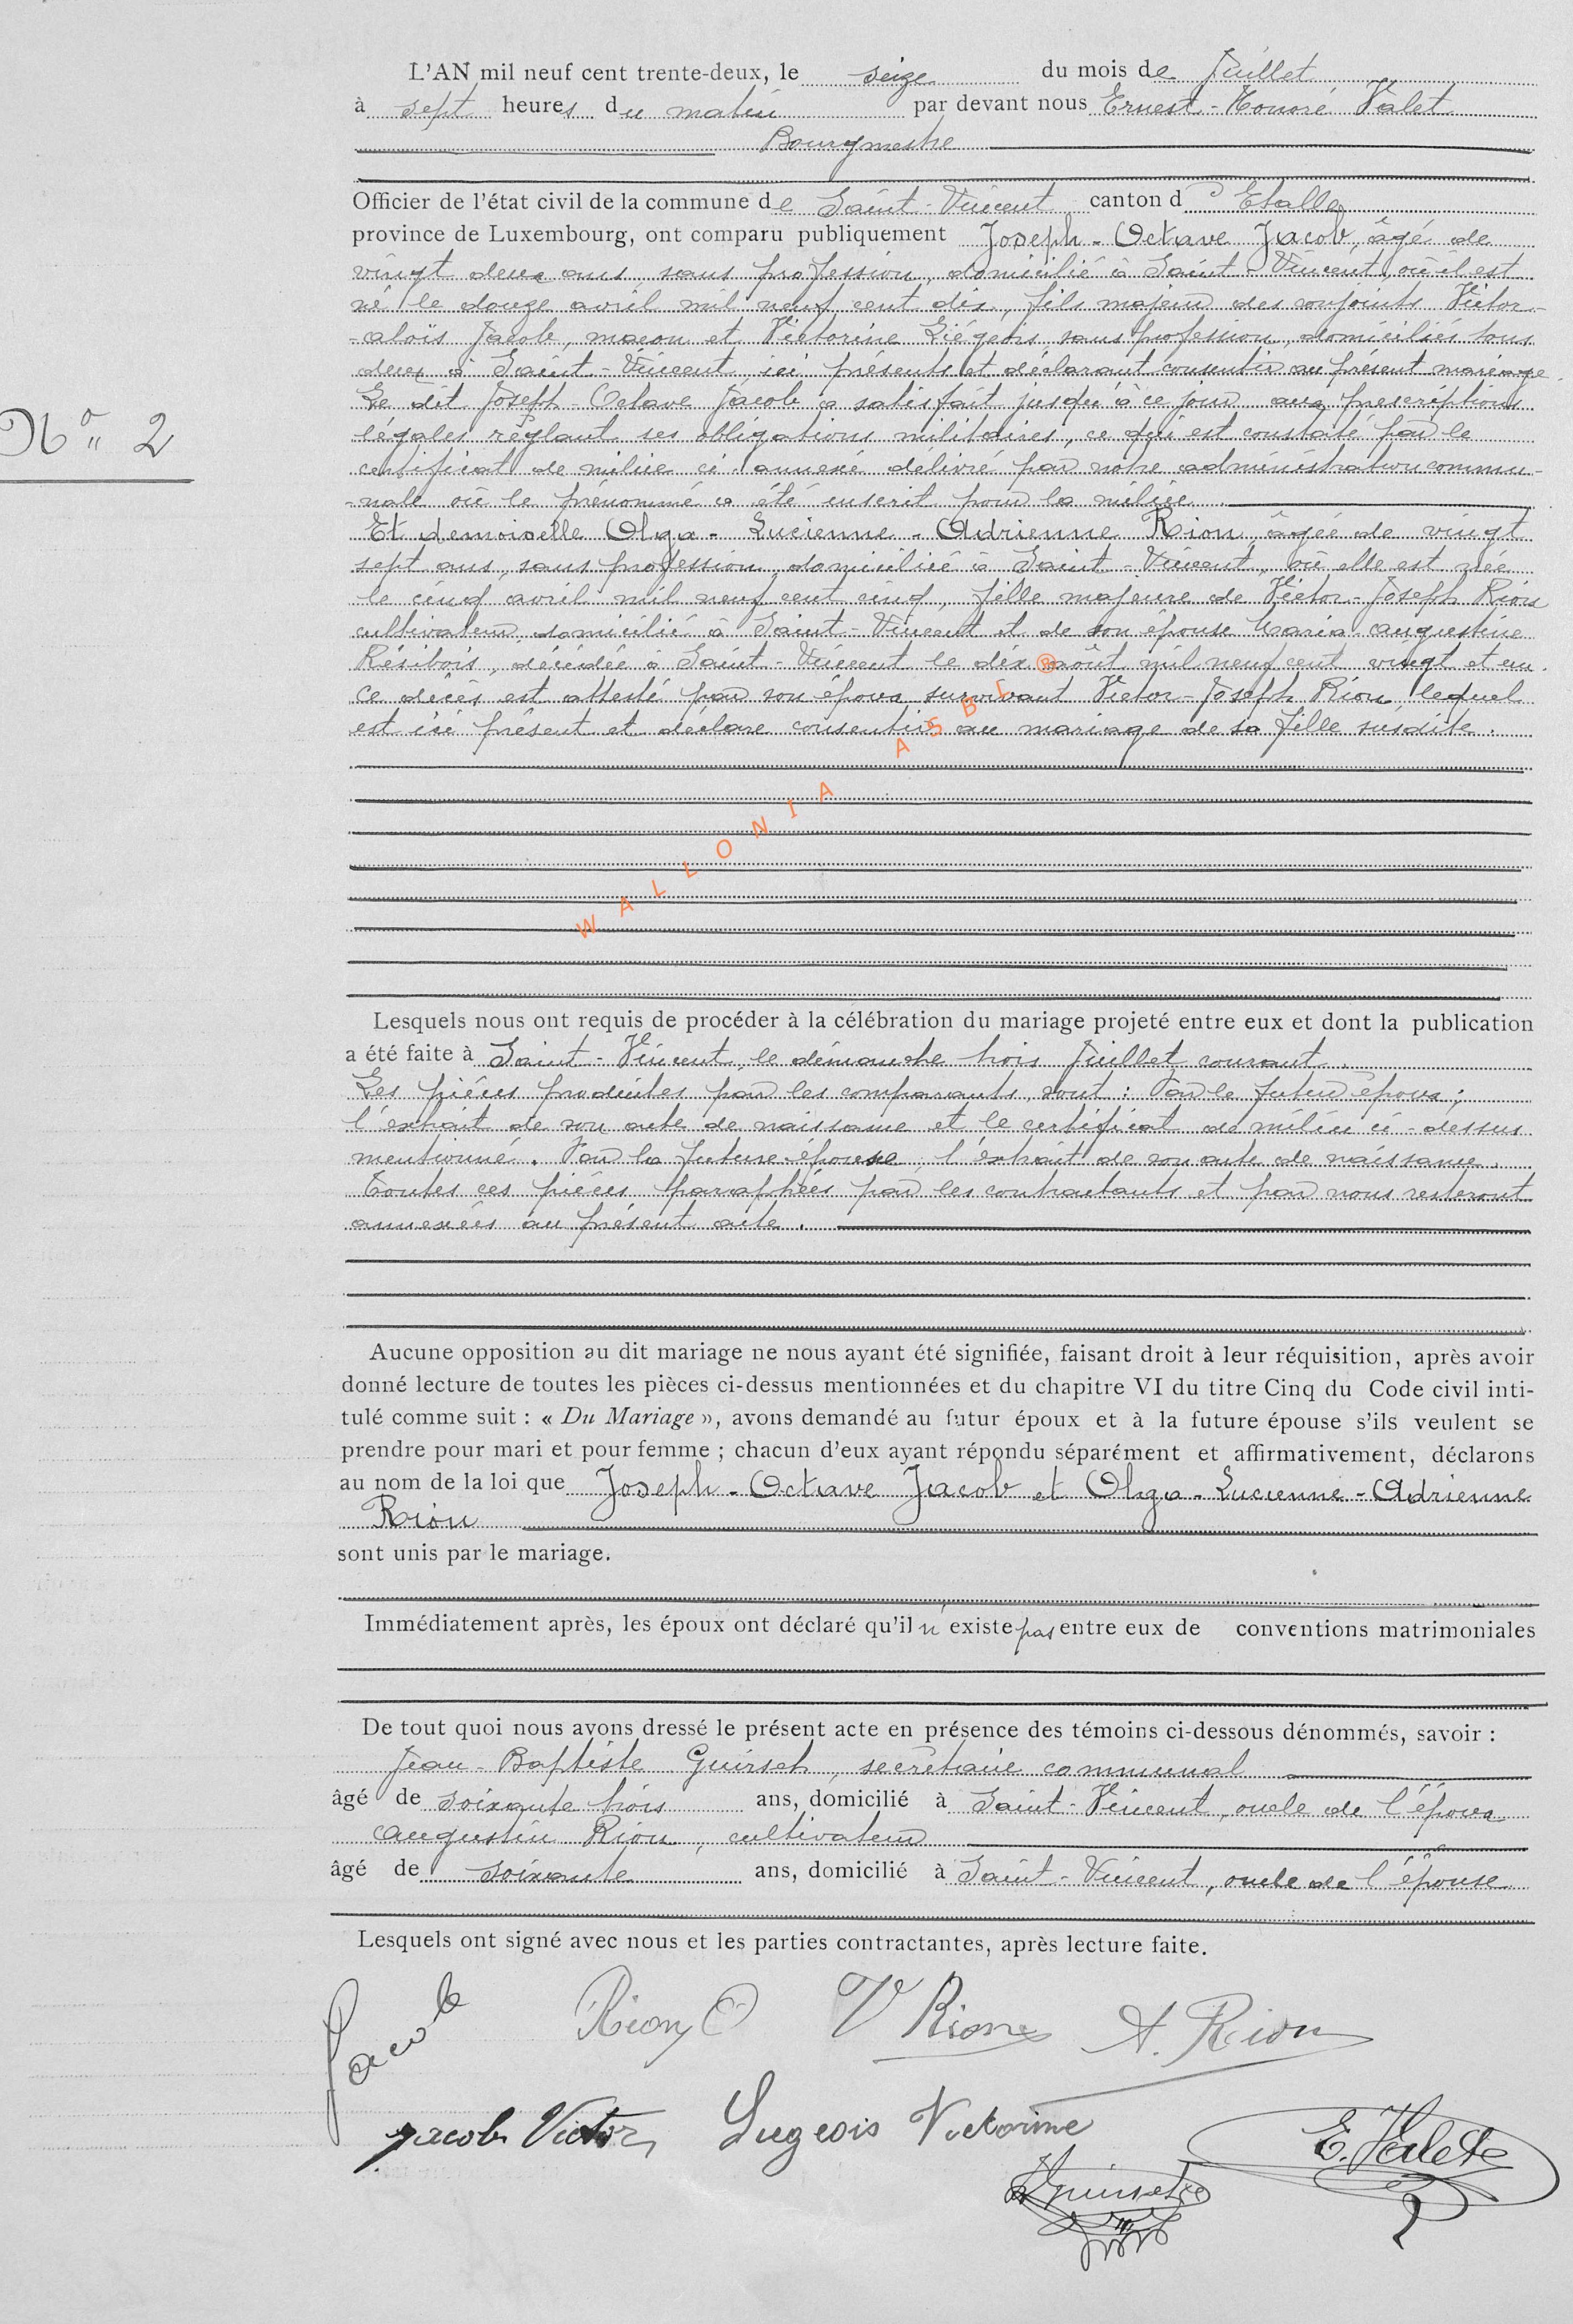 L'AN mil neuf cent trente-deux, le seize du mois de Juillet
à sept heures du matin par devant nous Ernest-Honoré Valet
Bourgmestre
Officier de l'état civil de la commune de Saint-Vincent canton d'Etalle
province de Luxembourg, ont comparu publiquement Joseph-Octave Jacob, âgé de
vingt deux ans, sans profession, domicilié à Saint-Vincent, où il est
né le douze avril mil neuf cent dix, fils majeur des conjoints Victor-
-aloïs Jacob, maçon et Victorine Liégeois, sans profession, domiciliés tous
deux à Saint-Vincent, ici présents et déclarant consentir au présent mariage.
Le dit Joseph-Octave Jacob a satisfait jusqu'à ce jour aux prescriptions
légales réglant ses obligations militaires, ce qui est constaté par le
certificat de milice ci-annexé délivré par notre administration commu-
-nale où le prénommé a été inscrit pour la milice
Et demoiselle Olga-Lucienne-Adrienne Rion, âgée de vingt
sept ans, sans profession, domiciliée à Saint-Vincent, où elle est née
le cinq avril mil neuf cent cinq, fille majeure de Victor-Joseph Rion
cultivateur domicilié à Saint-Vincent et de son épouse Maria augustine
Résibois, décédée à Saint-Vincent le dix août mil neuf cent vingt et un.
Ce décès est attesté par son époux survivant Victor-Joseph Rion, lequel
est ici présent et déclare consentir au mariage de sa fille susdite.
WALLONIA ASBL ®
N° 2
Lesquels nous ont requis de procéder à la célébration du mariage projeté entre eux et dont la publication
a été faite à Saint-Vincent, le dimanche trois Juillet courant.
Les pièces produites par les comparants, sont : Par le futur époux ;
l'extrait de son acte de naissance et le certificat de milice ci-dessus
mentionné. Par la future épouse, l'extrait de son acte de naissance.
Toutes ces pièces paraphées par les contractants et par nous resteront
annexées au présent acte.
Aucune opposition au dit mariage ne nous ayant été signifiée, faisant droit à leur réquisition, après avoir
donné lecture de toutes les pièces ci-dessus mentionnées et du chapitre VI du titre Cinq du Code civil inti-
tulé comme suit : « Du Mariage », avons demandé au futur époux et à la future épouse s'ils veulent se
prendre pour mari et pour femme ; chacun d'eux ayant répondu séparément et affirmativement, déclarons
au nom de la loi que Joseph-Octave Jacob et Olga-Lucienne-Adrienne
Rion
sont unis par le mariage.
Immédiatement après, les époux ont déclaré qu'il n'existe pas entre eux de conventions matrimoniales
De tout quoi nous avons dressé le présent acte en présence des témoins ci-dessous dénommés, savoir :
Jean-Baptiste Guirsch, secrétaire communal
âgé de soixante trois ans, domicilié à Saint-Vincent, oncle de l'époux
augustin Rion, cultivateur
âgé de soixante ans, domicilié à Saint-Vincent, oncle de l'épouse
Lesquels ont signé avec nous et les parties contractantes, après lecture faite.
Jacob Rion O V Rion A. Rion
Jacob Victor Liegeois Victorine
Guirsch E. Valet